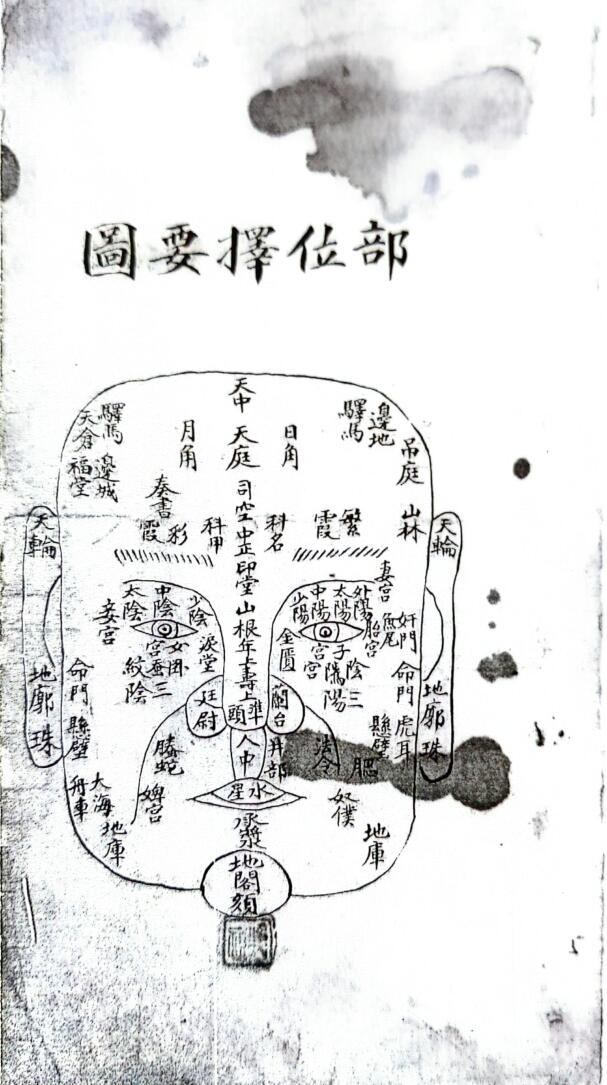 部位擇要圖
天中
天庭
司空
中正
印堂
山根
年上
壽上
準頭
人中
水星
承漿
地閣頦
日角
驛馬
邊地
吊庭
山林
科名
繁霞
天輪
妻宮
外陽
太陽
中陽
少陽
魚尾
奸門
胎宮
子宮
金匱
陰隲
三陽
命門
虎耳
懸壁
地廓
珠
蘭台
井部
法令
肥
奴僕
地庫
月角
驛馬
天倉
邊城
福堂
奏書
彩霞
科甲
天輪
少陰
中陰
太陰
妾宮
淚堂
女宮
蚕囷
三陰
紋
命門
懸壁
地廓
珠
廷尉
螣蛇
婢宮
大海
舟車
地庫